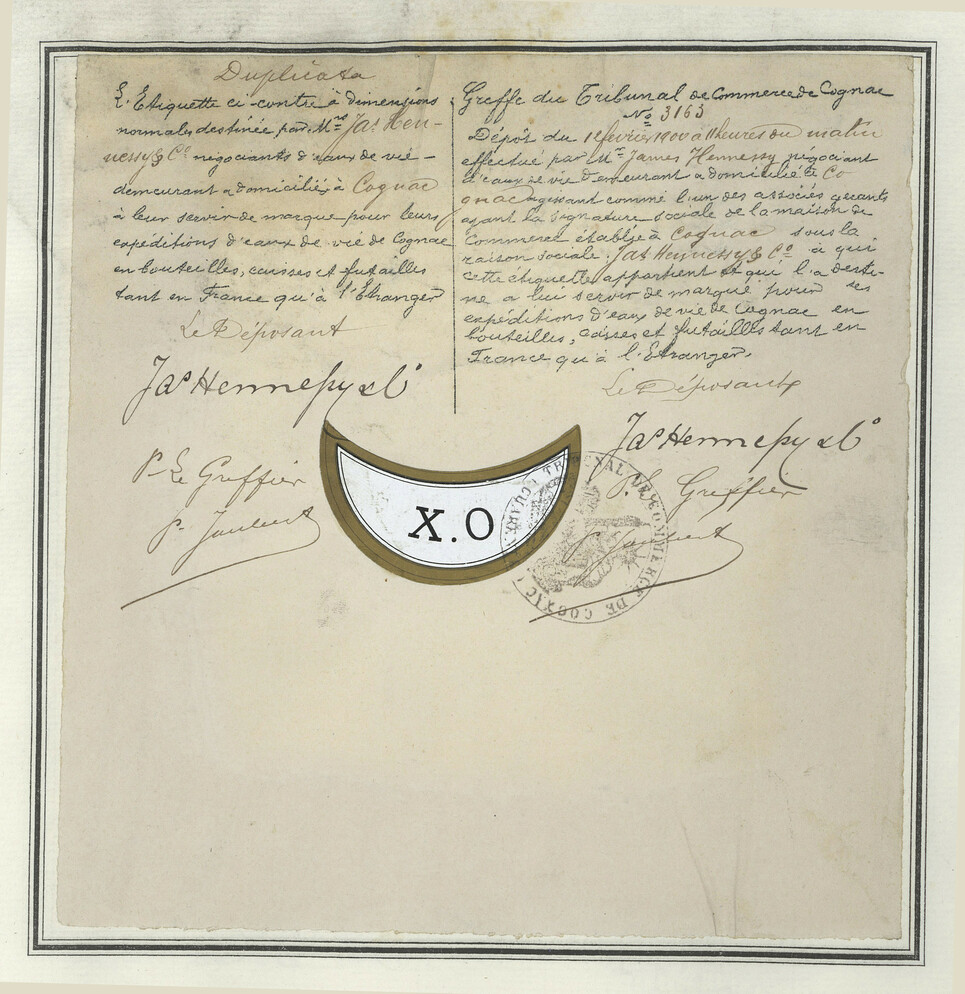 Duplicata
L'Etiquette ci-contre à dimensions
normales destinée par Mrs Jas Hen-
nessy & Co négociants d'eaux de vie -
demeurant & domiciliés à Cognac
à leur servir de marque pour leurs
expéditions d'eaux de vie de Cognac
en bouteilles, caisses et futailles
tant en France qu'à l'Etranger
Le Déposant
Jas Hennessy & Co
P. Le Greffier
Greffe du Tribunal de Commerce de Cognac
No 3163
Dépôt du 1 février 1900 à 11 heures du matin
effectué par Mr James Hennessy négociant
d'eaux de vie demeurant & domicilié à Co
gnac agissant comme l'un des associés gérants
ayant la signature sociale de la maison de
Commerce établie à Cognac sous la
raison sociale Jas Hennessy & Co à qui
cette étiquette appartient et qui l'a desti-
née à lui servir de marque pour ses
expéditions d'eaux de vie de Cognac en
bouteilles, caisses et futailles tant en
France qu'à l'Etranger.
Le Déposant
Jas Hennessy & Co
P. Greffier
X.O
TRIBUNAL DE COMMERCE DE COGNAC